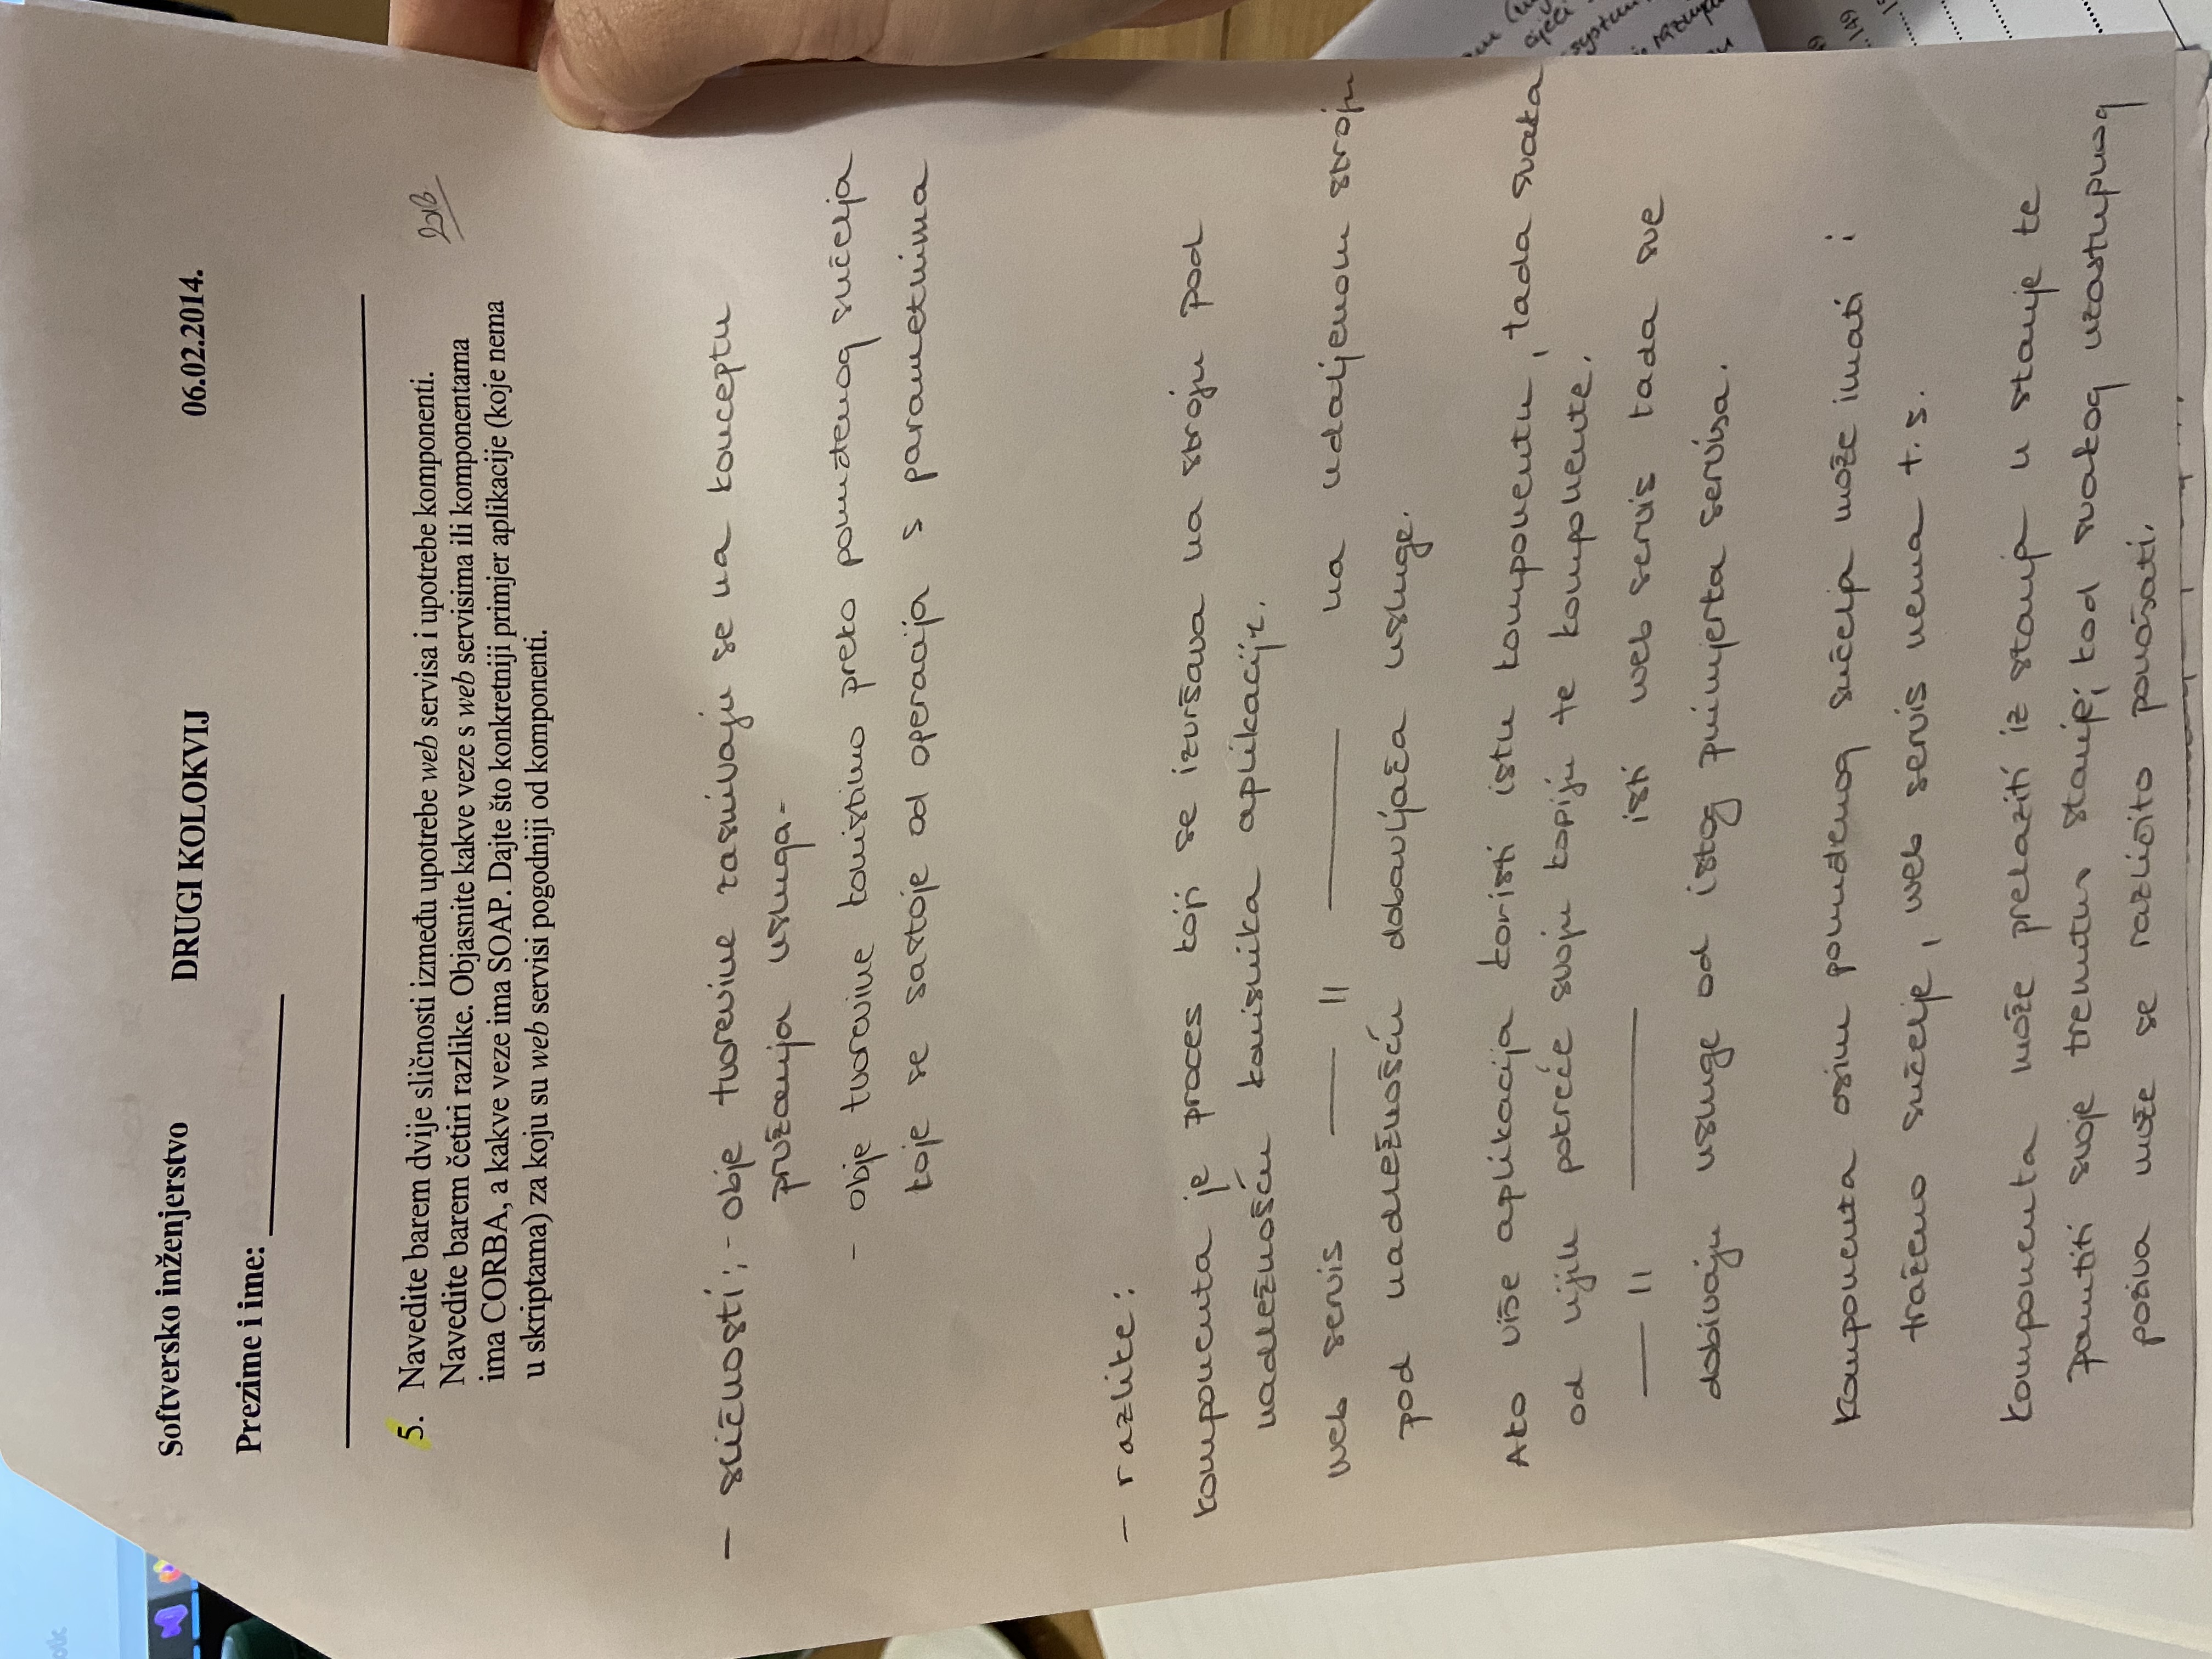 Softversko inženjerstvo DRUGI KOLOKVIJ 06.02.2014.
Prezime i ime:
5. Navedite barem dvije sličnosti između upotrebe web servisa i upotrebe komponenti.
Navedite barem četiri razlike. Objasnite kakve veze s web servisima ili komponentama
ima CORBA, a kakve veze ima SOAP. Dajte što konkretniji primjer aplikacije (koje nema
u skriptama) za koju su web servisi pogodniji od komponenti.
- sličnosti: - obje tvorevine zasnivaju se na konceptu
pružanja usluga-
- obje tvorevine koristimo preko ponuđenog sučelja
koje se sastoje od operacija s parametrima
- razlike:
Komponenta je proces koji se izvršava na stroju pod
nadležnošću korisnika aplikacije.
web servis — 11 — na udaljenom stroju
pod nadležnošću dobavljača usluge.
Ako više aplikacija koristi istu komponentu, tada svaka
od njih pokreće svoju kopiju te komponente.
— 11 — isti web servis tada sve
dobivaju usluge od istog primjerka servisa.
Komponenta osim ponuđenog sučelja može imati i
traženo sučelje, web servis nema t. s.
Komponenta može prelaziti iz stanja u stanje te
pamtiti svoje trenutno stanje; kod svakog uzastupnog
poziva može se različito ponašati.
149